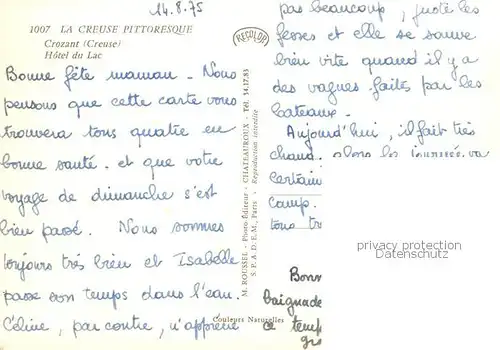 14.8.75
1007 LA CREUSE PITTORESQUE
Crozant (Creuse)
Hôtel du Lac
RECOLOR
Bonne fête maman. Nous
pensons que cette carte vous
trouvera tous quatre en
bonne santé. et que votre
voyage de dimanche s'est
bien passé. Nous sommes
toujours très bien et Isabelle
passe son temps dans l'eau.
Céline, par contre, n'apprécie
M. ROUSSEL - Photo-Éditeur - CHATEAUROUX - Tél. 34.17.83
S.P.A.D.E.M., Paris - Reproduction interdite
Couleurs Naturelles
pas beaucoup, juste les
fesses et elle se sauve
bien vite quand il y a
des vagues faites par les
bateaux.
Aujourd'hui, il fait très
chaud, alors la journée va
certain
camp.
tous tr
privacy protection
Datenschutz
Bonn
baignade
ce temp
gro